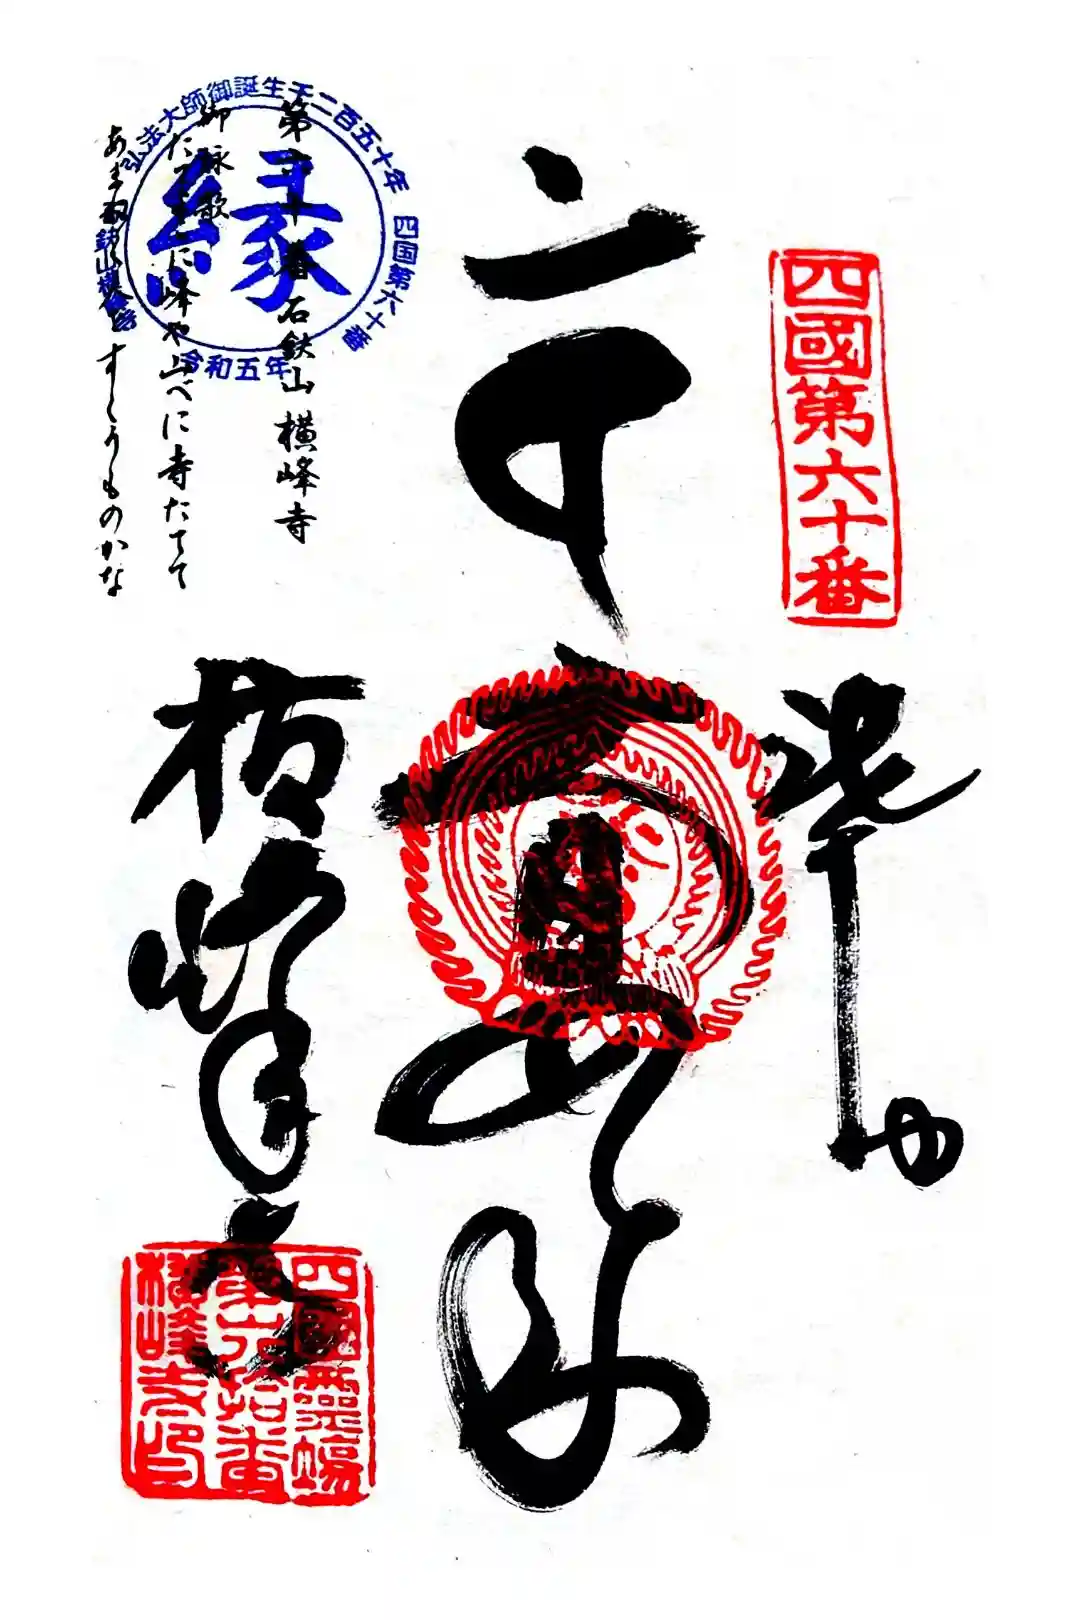 四國第六十番
奉
大日如来
横峰寺
第六十番石鈇山横峰寺
御詠歌
たてよこに峰や山べに寺たてて
あまねく人をすくうものかな
弘法大師御誕生千二百五十年
四国第六十番
令和五年
縁
四國霊場
第六拾番
横峰寺印